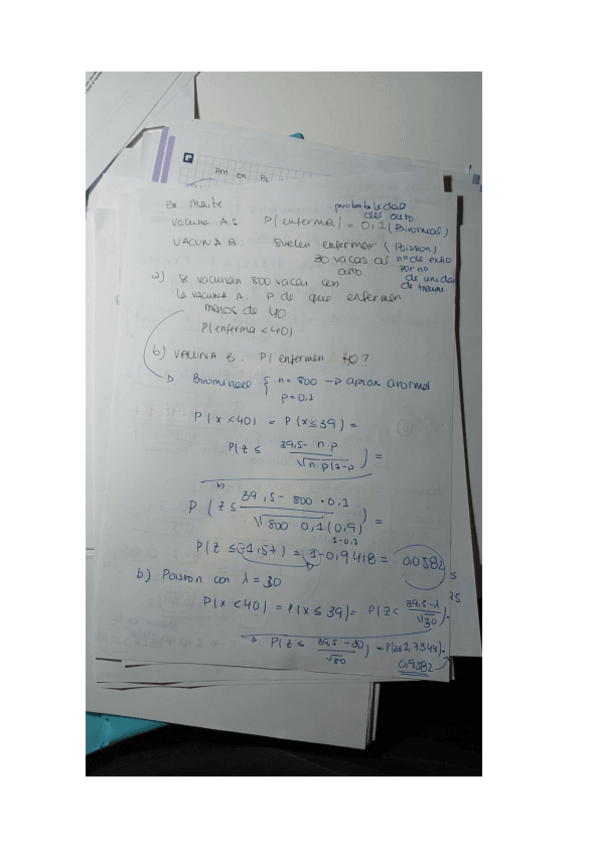 Ex Maite
probabilidad de éxito
Vacuna A: P(enfermar) = 0,1 (Binomial)
VACUNA B: Suelen enfermar (Poisson)
30 vacas al año. nº de éxito por nº de unidad de tiempo
a) Se vacunan 800 vacas con
la vacuna A. P de que enfermen
menos de 40
P(enferma < 40)
b) VACUNA B. P(enfermen 40?
Binomiales { n = 800 → aprox a normal
p = 0,1
P(x < 40) = P(x ≤ 39) =
P(z ≤ 39,5 - n·p / √n·p(1-p) ) =
P(z ≤ 39,5 - 800·0,1 / √800 0,1(0,9) ) =
1-0,1
P(z ≤ -1,57) = 1-0,9418 = 0,0582
b) Poisson con λ = 30
P(x < 40) = P(x ≤ 39) = P(z < 39,5-λ / √30 ).
P(z ≤ 39,5-30 / √30 ) = P(z≤1,7344).
0,9582